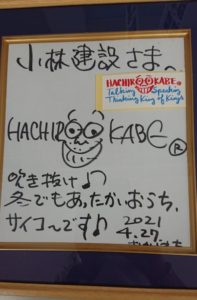 小林建設さまへ
HACHIROKABE®
Talking Speaking
Thinking King of Kings
HACHIRO KABE®
吹き抜け♪
冬でもあったかおうち、
サイコ〜です♪
2021
4.27